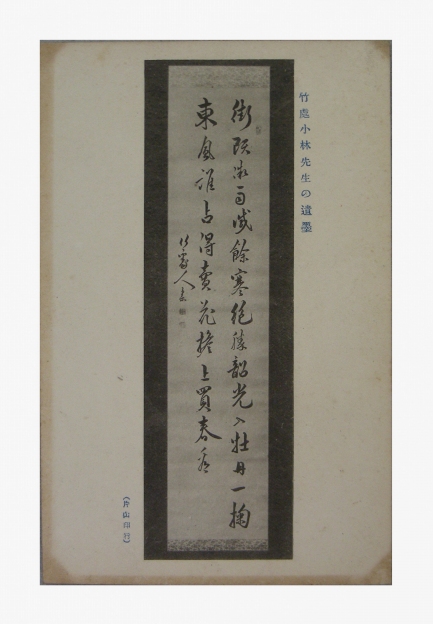 竹處小林先生の遺墨
街頭微雨減餘寒絶勝韶光入牡丹一掬
東風誰占得賣花擔上買春看
竹處人
印行